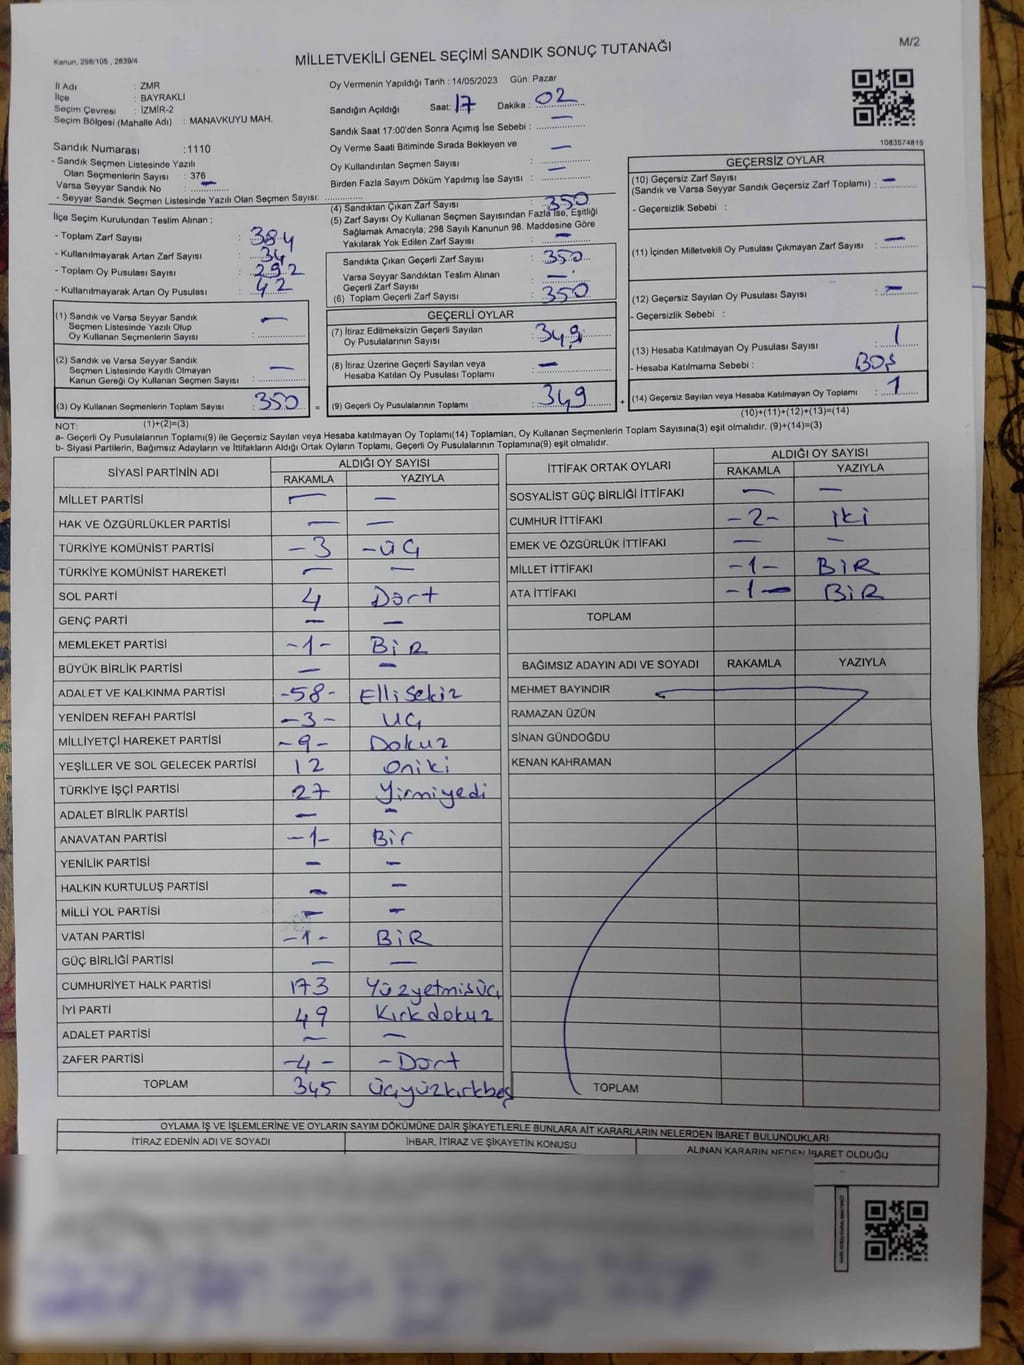 M/2
Kanun, 298/105 , 2839/4
MİLLETVEKİLİ GENEL SEÇİMİ SANDIK SONUÇ TUTANAĞI
İl Adı : ZMR
İlçe : BAYRAKLI
Seçim Çevresi : İZMİR-2
Seçim Bölgesi (Mahalle Adı) : MANAVKUYU MAH.
Sandık Numarası :1110
- Sandık Seçmen Listesinde Yazılı
Olan Seçmenlerin Sayısı : 376
Varsa Seyyar Sandık No : —
- Seyyar Sandık Seçmen Listesinde Yazılı Olan Seçmen Sayısı:
Oy Vermenin Yapıldığı Tarih : 14/05/2023 Gün: Pazar
Sandığın Açıldığı Saat: 17 Dakika : 02
Sandık Saat 17:00'den Sonra Açımış İse Sebebi : —
Oy Verme Saati Bitiminde Sırada Bekleyen ve
Oy Kullandırılan Seçmen Sayısı : —
Birden Fazla Sayım Döküm Yapılmış İse Sayısı : —
1083574815
İlçe Seçim Kurulundan Teslim Alınan ;
- Toplam Zarf Sayısı : 384
- Kullanılmayarak Artan Zarf Sayısı : 34
- Toplam Oy Pusulası Sayısı : 292
- Kullanılmayarak Artan Oy Pusulası : 42
(1) Sandık ve Varsa Seyyar Sandık
Seçmen Listesinde Yazılı Olup
Oy Kullanan Seçmenlerin Sayısı : —
(2) Sandık ve Varsa Seyyar Sandık
Seçmen Listesinde Kayıtlı Olmayan
Kanun Gereği Oy Kullanan Seçmen Sayısı : —
(3) Oy Kullanan Seçmenlerin Toplam Sayısı : 350
(1)+(2)=(3)
(4) Sandıktan Çıkan Zarf Sayısı : 350
(5) Zarf Sayısı Oy Kullanan Seçmen Sayısından Fazla İse, Eşitliği
Sağlamak Amacıyla; 298 Sayılı Kanunun 98. Maddesine Göre
Yakılarak Yok Edilen Zarf Sayısı : —
Sandıkta Çıkan Geçerli Zarf Sayısı : 350
Varsa Seyyar Sandıktan Teslim Alınan
Geçerli Zarf Sayısı : —
(6) Toplam Geçerli Zarf Sayısı : 350
GEÇERLİ OYLAR
(7) İtiraz Edilmeksizin Geçerli Sayılan
Oy Pusulalarının Sayısı : 349
(8) İtiraz Üzerine Geçerli Sayılan veya
Hesaba Katılan Oy Pusulası Toplamı : —
= (9) Geçerli Oy Pusulalarının Toplamı : 349
GEÇERSİZ OYLAR
(10) Geçersiz Zarf Sayısı
(Sandık ve Varsa Seyyar Sandık Geçersiz Zarf Toplamı) : —
- Geçersizlik Sebebi :
(11) İçinden Milletvekili Oy Pusulası Çıkmayan Zarf Sayısı : —
(12) Geçersiz Sayılan Oy Pusulası Sayısı : —
- Geçersizlik Sebebi :
(13) Hesaba Katılmayan Oy Pusulası Sayısı : 1
- Hesaba Katılmama Sebebi : BOŞ
+ (14) Geçersiz Sayılan veya Hesaba Katılmayan Oy Toplamı : 1
(10)+(11)+(12)+(13)=(14)
NOT:
a- Geçerli Oy Pusulalarının Toplamı(9) ile Geçersiz Sayılan veya Hesaba katılmayan Oy Toplamı(14) Toplamları, Oy Kullanan Seçmenlerin Toplam Sayısına(3) eşit olmalıdır. (9)+(14)=(3)
b- Siyasi Partilerin, Bağımsız Adayların ve İttifakların Aldığı Ortak Oyların Toplamı, Geçerli Oy Pusulalarının Toplamına(9) eşit olmalıdır.
SİYASİ PARTİNİN ADI ALDIĞI OY SAYISI
RAKAMLA YAZIYLA
MİLLET PARTİSİ — —
HAK VE ÖZGÜRLÜKLER PARTİSİ — —
TÜRKİYE KOMÜNİST PARTİSİ -3 -ÜÇ
TÜRKİYE KOMÜNİST HAREKETİ — —
SOL PARTİ 4 Dört
GENÇ PARTİ — —
MEMLEKET PARTİSİ -1- BiR
BÜYÜK BİRLİK PARTİSİ — —
ADALET VE KALKINMA PARTİSİ -58- Elli Sekiz
YENİDEN REFAH PARTİSİ -3- UÇ
MİLLİYETÇİ HAREKET PARTİSİ -9- Dokuz
YEŞİLLER VE SOL GELECEK PARTİSİ 12 Oniki
TÜRKİYE İŞÇİ PARTİSİ 27 Yirmiyedi
ADALET BİRLİK PARTİSİ — —
ANAVATAN PARTİSİ -1- Bir
YENİLİK PARTİSİ — —
HALKIN KURTULUŞ PARTİSİ — —
MİLLİ YOL PARTİSİ — —
VATAN PARTİSİ -1- BiR
GÜÇ BİRLİĞİ PARTİSİ — —
CUMHURİYET HALK PARTİSİ 173 Yüzyetmisüç
İYİ PARTİ 49 Kırkdokuz
ADALET PARTİSİ — —
ZAFER PARTİSİ -4- -Dört
TOPLAM 345 üçyüzkırkbeş
İTTİFAK ORTAK OYLARI ALDIĞI OY SAYISI
RAKAMLA YAZIYLA
SOSYALİST GÜÇ BİRLİĞİ İTTİFAKI — —
CUMHUR İTTİFAKI -2- iki
EMEK VE ÖZGÜRLÜK İTTİFAKI — —
MİLLET İTTİFAKI -1- BİR
ATA İTTİFAKI -1- BiR
TOPLAM
BAĞIMSIZ ADAYIN ADI VE SOYADI RAKAMLA YAZIYLA
MEHMET BAYINDIR
RAMAZAN ÜZÜN
SİNAN GÜNDOĞDU
KENAN KAHRAMAN
TOPLAM
OYLAMA İŞ VE İŞLEMLERİNE VE OYLARIN SAYIM DÖKÜMÜNE DAİR ŞİKAYETLERLE BUNLARA AİT KARARLARIN NELERDEN İBARET BULUNDUKLARI
İTİRAZ EDENİN ADI VE SOYADI İHBAR, İTİRAZ VE ŞİKAYETİN KONUSU ALINAN KARARIN NEDEN İBARET OLDUĞU